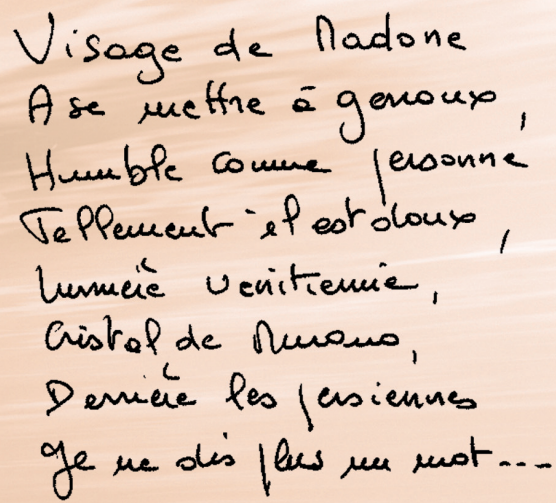 Visage de Madone
A se mettre à genoux,
Humble comme personne
Tellement il est doux,
Lumière vénitienne,
Cristal de Murano,
Derrière les persiennes
Je ne dis plus un mot...